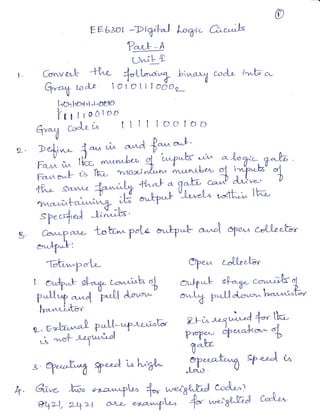 ①
EE6301 - Digital Logic Circuits
Part - A
Unit I
1. Convert the following binary code into a
Gray code 1010111000₂
1-0-1-0-1-1-1-0-0-0
1111100100
Gray Code is 1111100100
2. Define fan in and fan out.
Fan in is the number of inputs in a logic gate.
Fan out is the maximum number of inputs of
the same family that a gate can drive
maintaining its output levels within the
specified limits.
3. Compare totem pole output and open collector
output:
Totempole
Open collector
1. Output stage consists of
pullup and pull down
transistor
Output stage consists of
only pulldown transistor
2. External pull-up resistor
is not required
It is required for the
proper operation of
gate
3. Operating speed is high
operating speed is
low.
4. Give two examples for weighted codes?
8421, 2421 are examples for weighted codes